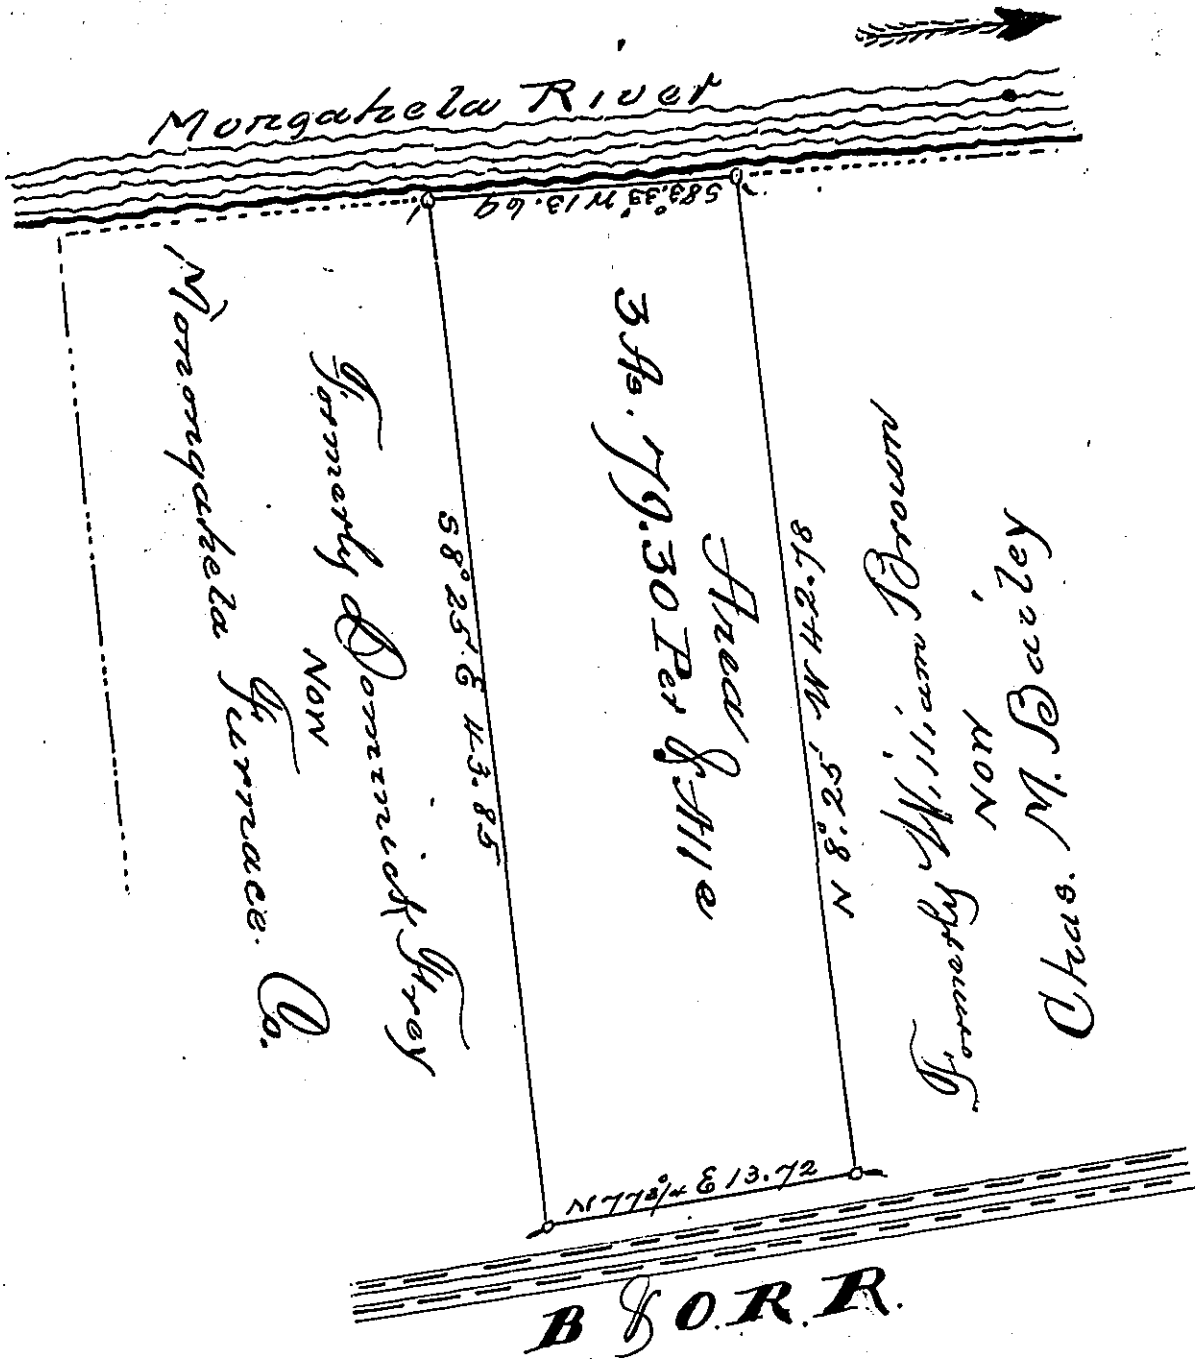 Mongahela River
S 83° 33' W 13.69
Monongahela Furnace. Co.
Now
Formerly Dominick Hrey
S 8° 25' E 43.85
Area
3 As. 79.30 Per & Alle
N 8° 25' W 42.78
Formerly William Brown
now
Chas. M. Bailey
N 77 3/4° E 13.72
B & O. R. R.